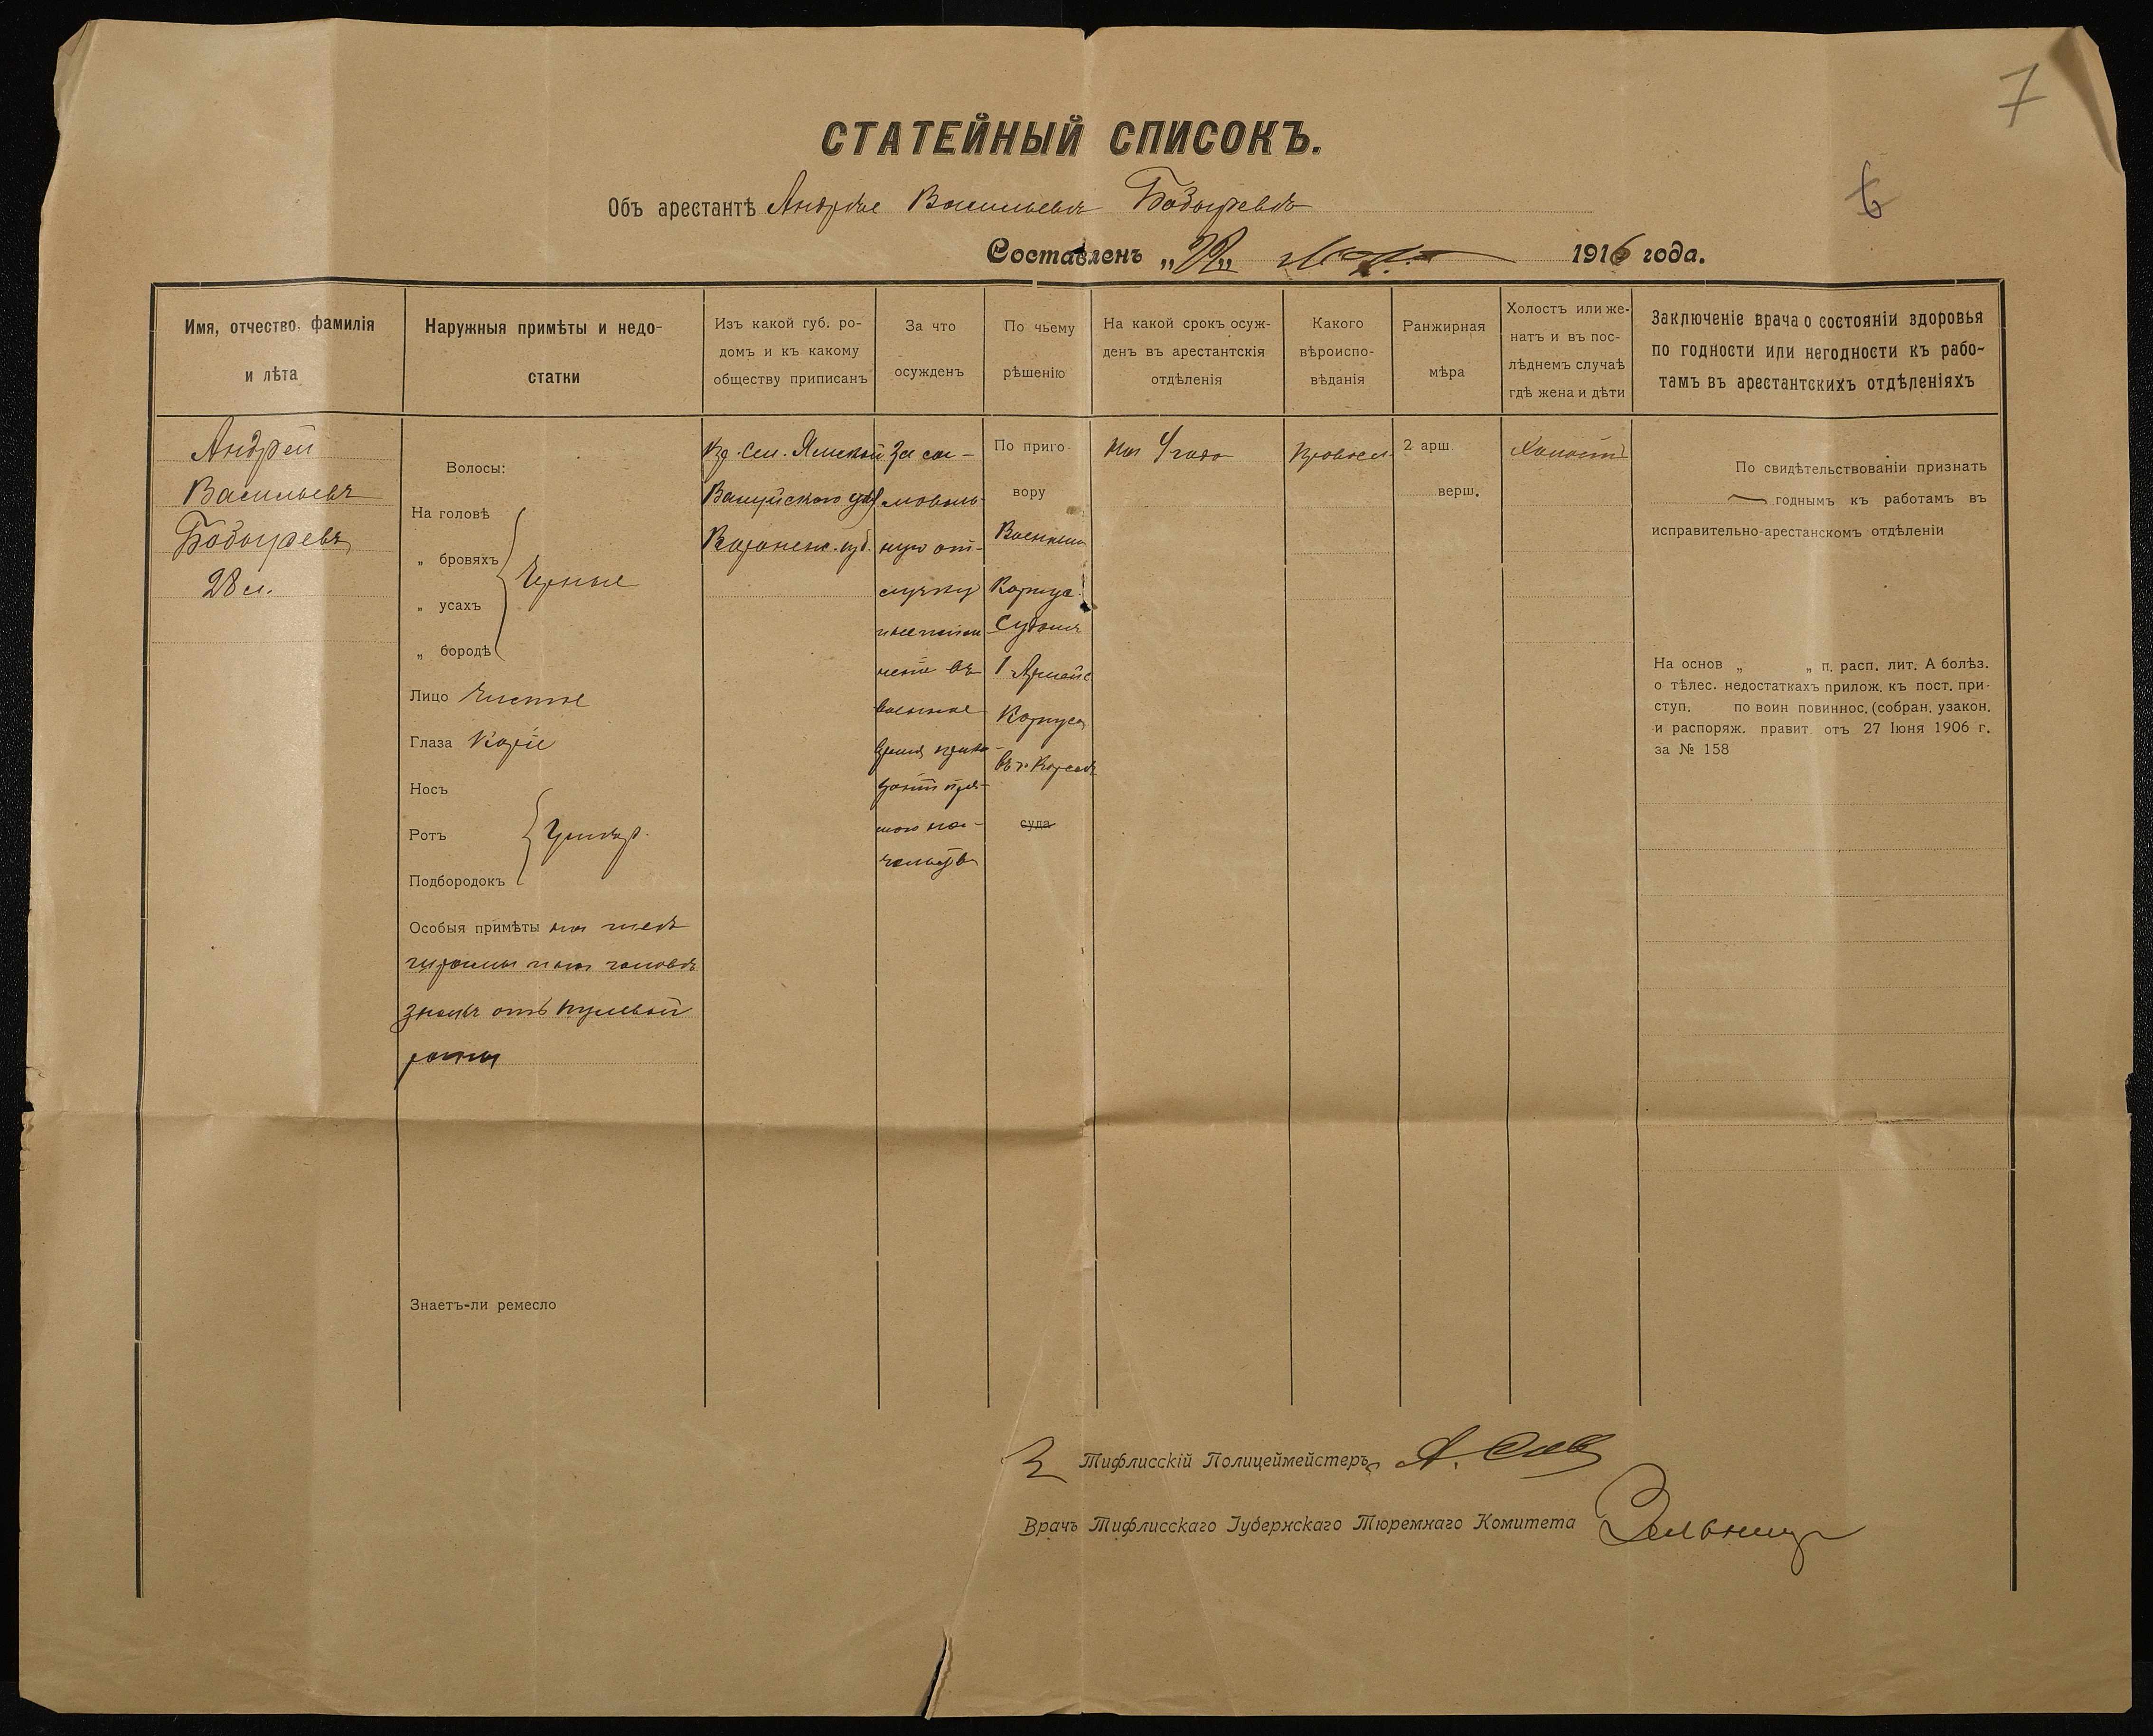 7
6
СТАТЕЙНЫЙ СПИСОКЪ.
Объ арестантѣ Андрѣе Васильевѣ Бодыревѣ
Составленъ „ „ 1916 года.
Имя, отчество, фамилія
и лѣта
Наружныя примѣты и недо-
статки
Изъ какой губ. ро-
домъ и къ какому
обществу приписанъ
За что
осужденъ
По чьему
рѣшенію
На какой срокъ осуж-
денъ въ арестантскія
отдѣленія
Какого
вѣроиспо-
вѣданія
Ранжирная
мѣра
Холостъ или же-
натъ и въ пос-
лѣднемъ случаѣ
гдѣ жена и дѣти
Заключеніе врача о состояніи здоровья
по годности или негодности къ рабо-
тамъ въ арестантскихъ отдѣленіяхъ
Андрей
Васильевъ
Бодыревъ
28 л.
Волосы:
На головѣ
„ бровяхъ
Черные
„ усахъ
„ бородѣ
Лицо Чистое
Глаза Каріе
Носъ
Ротъ
Подбородокъ
Особыя примѣты на шеѣ
шрамы и на головѣ
знаки отъ пулевой
раны
Знаетъ-ли ремесло
Сел. Ямской
Валуйскаго уѣз
Воронеж. губ.
За са-
моволь-
ную от-
лучку
въ
военное
время
По приго
вору
Военнаго
Корпус.
Суда
1 Армейс
Корпуса
въ г. Карсѣ
суда
На 4 года
Правосл.
2 арш.
верш.
Холостъ
По свидѣтельствованіи признать
— годнымъ къ работамъ въ
исправительно-арестанскомъ отдѣленіи
На основ „ „ п. расп. лит. А болѣз.
о тѣлес. недостаткахъ прилож. къ пост. при-
ступ. по воин повиннос. (собран. узакон.
и распоряж. правит отъ 27 Іюня 1906 г.
за № 158
Тифлисскій Полицеймейстеръ
Врачъ Тифлисскаго Губернскаго Тюремнаго Комитета